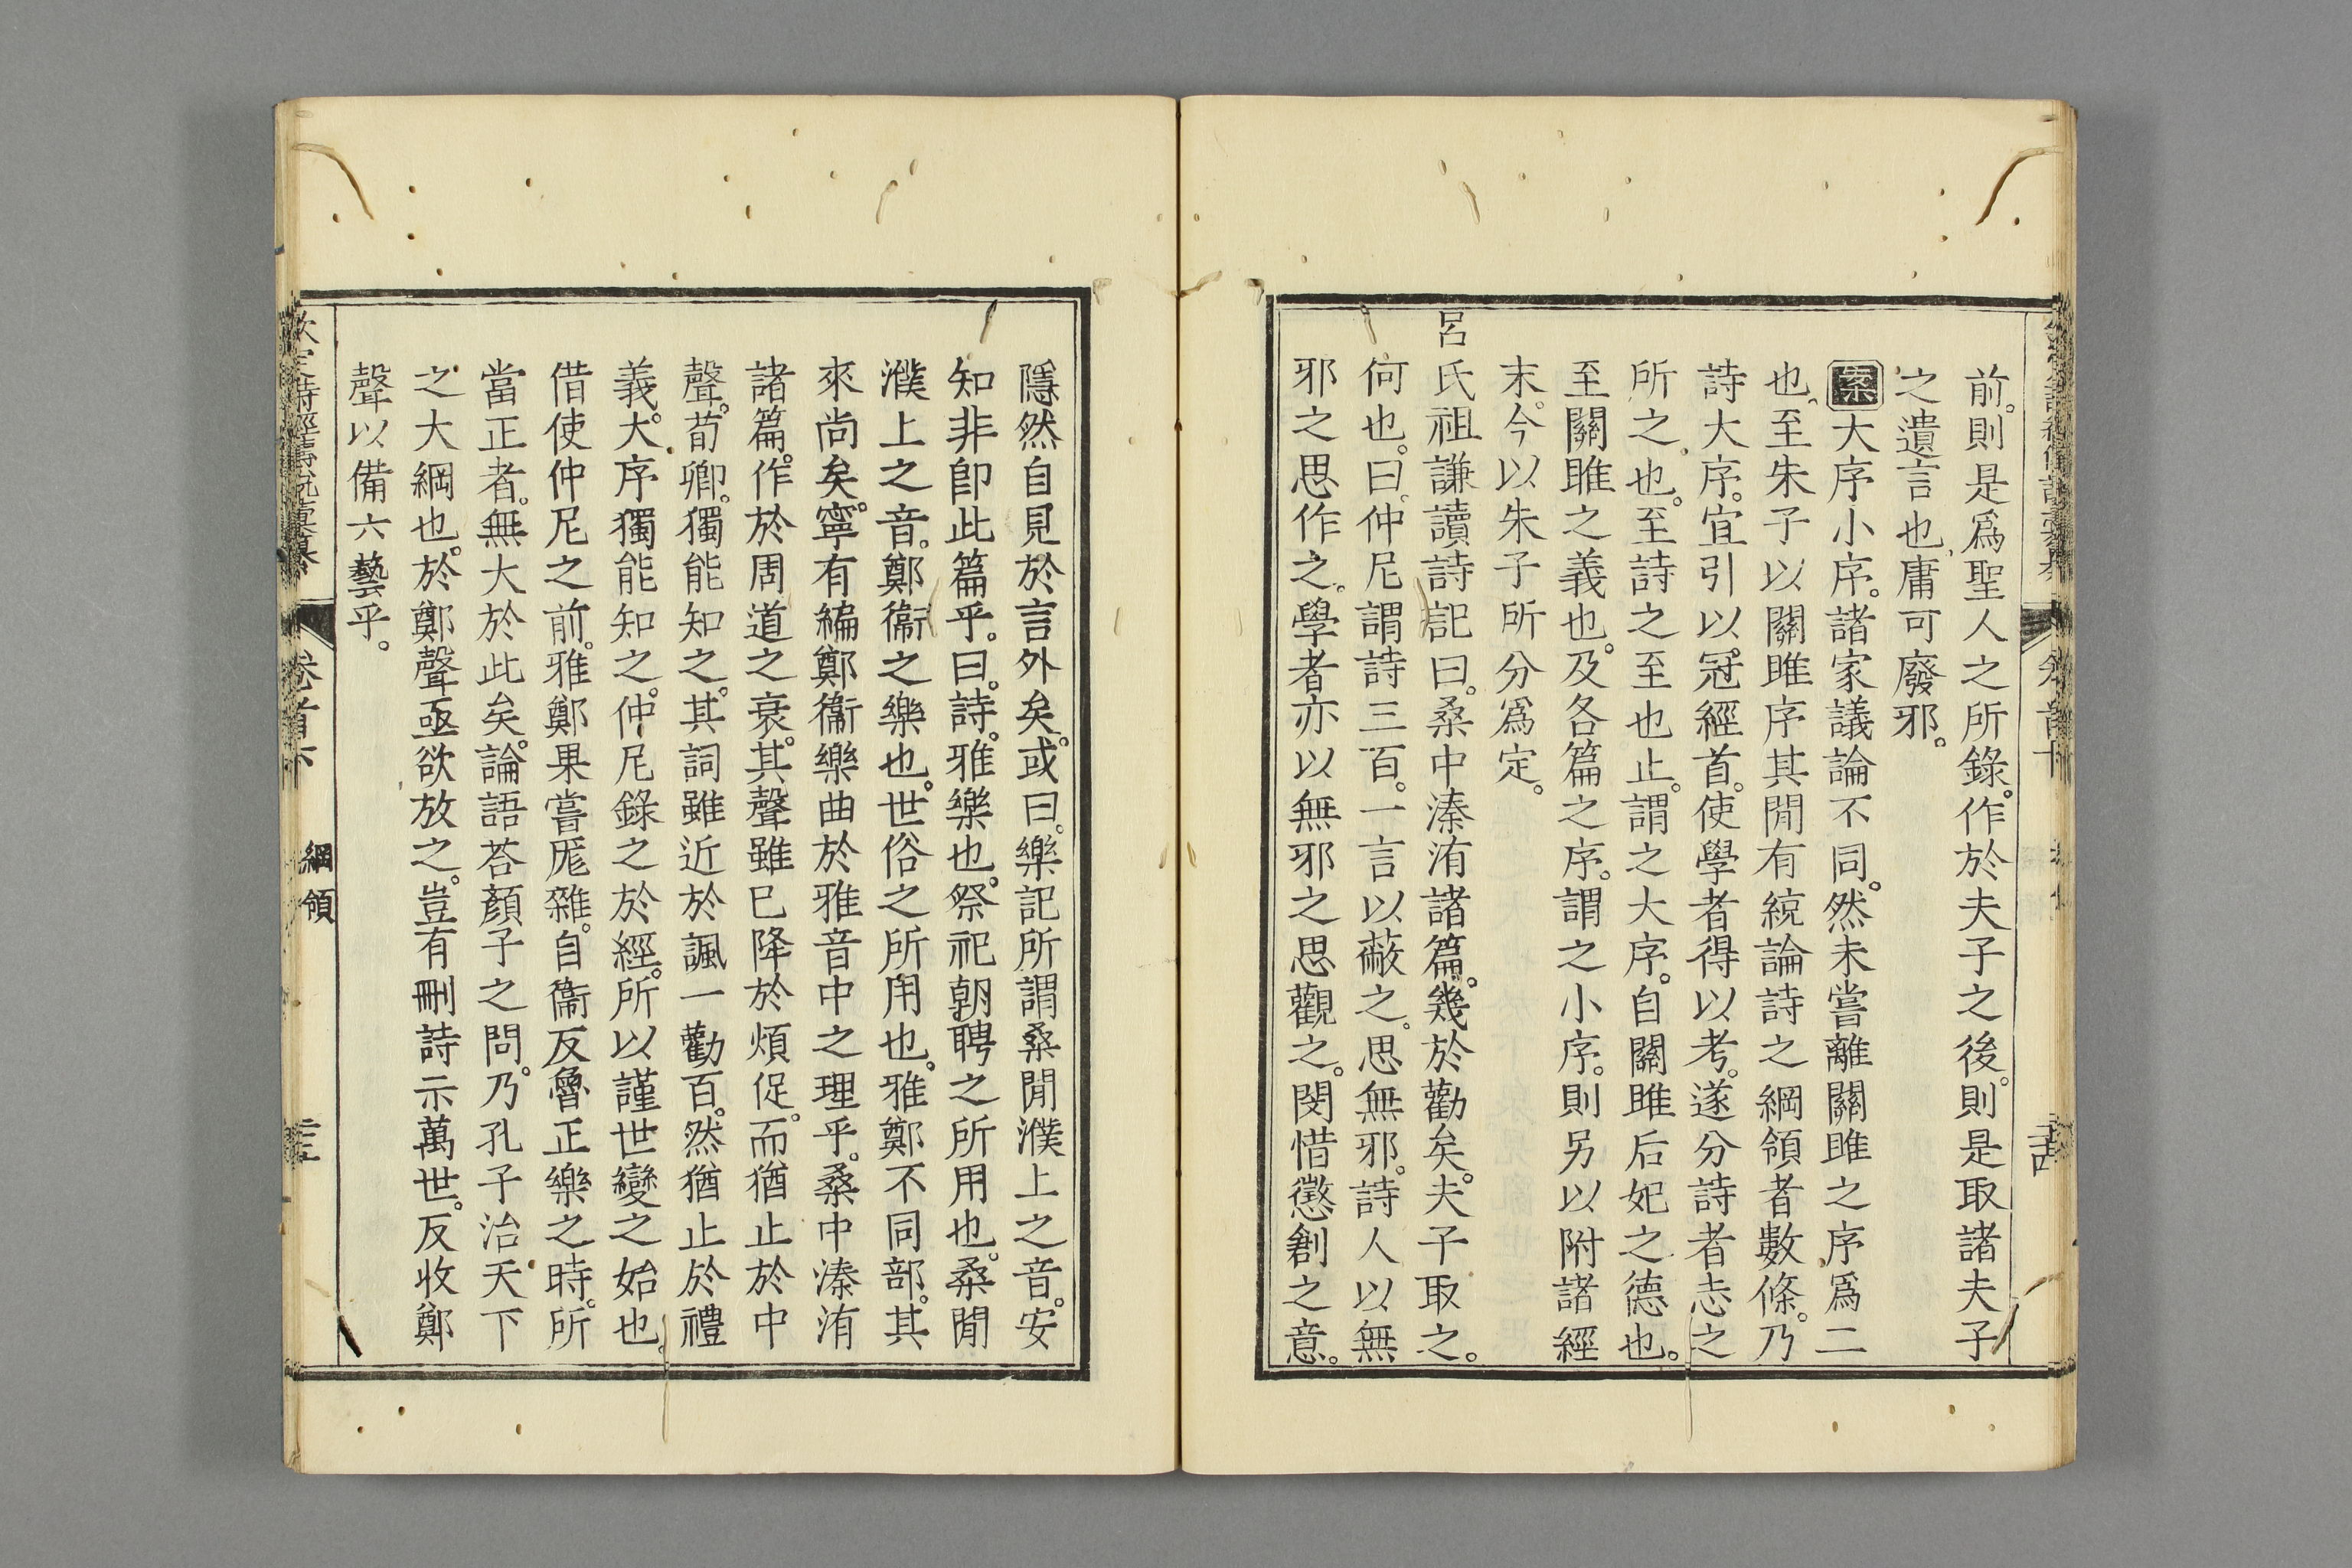 前。則是爲聖人之所錄。作於夫子之後。則是取諸夫子
之遺言也。庸可廢邪。
案大序小序。諸家議論不同。然未嘗離關雎之序爲二
也。至朱子以關雎序其閒有統論詩之綱領者數條。乃
詩大序。宜引以冠經首。使學者得以考。遂分詩者志之
所之也。至詩之至也止。謂之大序。自關雎后妃之德也。
至關雎之義也。及各篇之序。謂之小序。則另以附諸經
末。今以朱子所分爲定。
呂氏祖謙讀詩記曰。桑中溱洧諸篇。幾於勸矣。夫子取之。
何也。曰。仲尼謂詩三百。一言以蔽之。思無邪。詩人以無
邪之思作之。學者亦以無邪之思觀之。閔惜懲創之意。
隱然自見於言外矣。或曰。樂記所謂桑閒濮上之音。安
知非卽此篇乎。曰。詩。雅樂也。祭祀朝聘之所用也。桑閒
濮上之音。鄭衞之樂也。世俗之所用也。雅鄭不同部。其
來尚矣。寧有編鄭衞樂曲於雅音中之理乎。桑中溱洧
諸篇。作於周道之衰。其聲雖已降於煩促。而猶止於中
聲。荀卿。獨能知之。其詞雖近於諷一勸百。然猶止於禮
義。大序獨能知之。仲尼錄之於經。所以謹世變之始也。
借使仲尼之前。雅鄭果嘗厖雜。自衞反魯正樂之時。所
當正者。無大於此矣。論語荅顏子之問。乃孔子治天下
之大綱也。於鄭聲亟欲放之。豈有刪詩示萬世。反收鄭
聲以備六藝乎。
欽定詩經傳說彙纂 卷首下 綱領